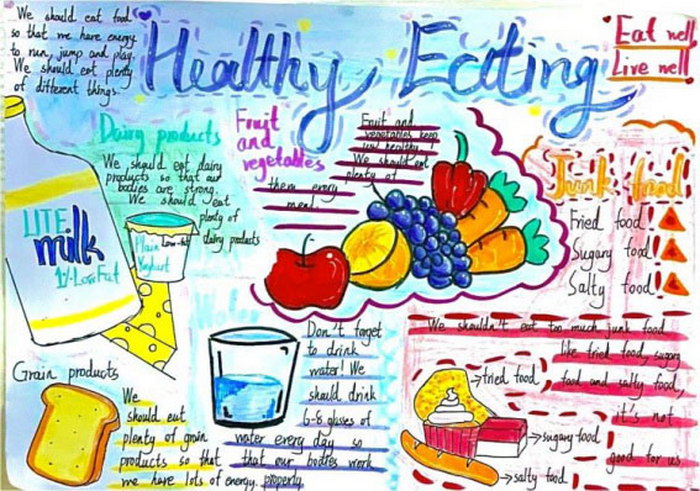 We should eat food
so that we have energy
to run, jump and play.
We should eat plenty
of different things.
Healthy Eating
Eat well
Live well
Dairy products
We should eat dairy
products so that our
bodies are strong.
We should eat
plenty of
dairy products
LITE
milk
1% Low Fat
Plain Low-fat
Yoghurt
Fruit
and
vegetables
Fruit and
vegetables keep
you healthy.
We should eat
plenty of
them every
meal.
Junk food
Fried food!
Sugary food!
Salty food!
We shouldn't eat too much junk food
like fried food, sugary
food and salty food,
it's not
good for us
fried food
sugary food
salty food
Water
Don't forget
to drink
water! We
should drink
6-8 glasses of
water every day so
that our bodies work
properly.
Grain products
We
should eat
plenty of grain
products so that
we have lots of energy.